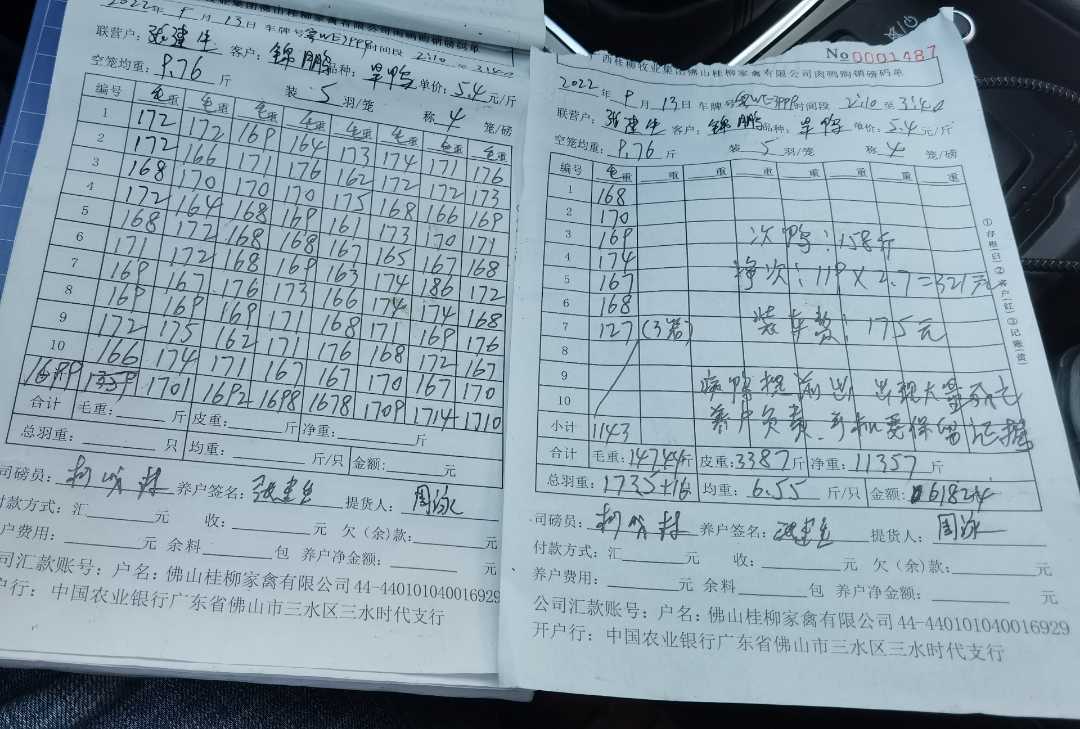 2022年9月13日 车牌号 时间段 2:10 至 3:40
联营户: 张建生 客户: 锦鹏 品种: 旱鸭 单价: 5.4 元/斤
空笼均重: 9.76 斤 装 5 羽/笼 称 4 笼/磅
编号 毛重 毛重 毛重 毛重 毛重 毛重 毛重 毛重
1 172 172 169 164 173 174 171 176
2 172 166 171 176 162 172 172 173
3 168 170 170 170 175 168 166 169
4 172 164 168 169 161 173 170 171
5 168 172 168 168 167 165 167 168
6 171 172 168 169 163 174 186 172
7 169 167 176 173 166 174 174 168
8 169 169 169 171 168 171 169 176
9 172 175 162 171 176 168 172 167
10 166 174 171 167 167 170 167 170
1699 1701 1692 1698 1678 1709 1714 1710
合计 毛重: 斤 皮重: 斤 净重: 斤
总羽重: 只 均重: 斤/只 金额: 元
司磅员: 养户签名: 张建生 提货人: 周泳
付款方式: 汇 元 收: 元 欠(余)款: 元
户费用: 元 余料 包 养户净金额: 元
司汇款账号: 户名: 佛山桂柳家禽有限公司 44-440101040016929
户行: 中国农业银行广东省佛山市三水区三水时代支行
No 0001487
西桂柳牧业集团佛山桂柳家禽有限公司肉鸭购销磅码单
2022年9月13日 车牌号 时间段 2:10 至 3:40
联营户: 张建生 客户: 锦鹏 品种: 旱鸭 单价: 5.4 元/斤
空笼均重: 9.76 斤 装 5 羽/笼 称 4 笼/磅
编号 毛重 重 重 重 重 重 重 重
1 168
2 170
3 169 次鸭: 158斤
4 174
5 167 净次: 119×2.7=321元
6 168
7 127 (3笼) 装车费: 175元
8
9 病鸭提前出 出现大量死亡
10
小计 1143 养户负责.手机要保留证据
合计 毛重: 14744斤 皮重: 3387斤 净重: 11357斤
总羽重: 1735+16 均重: 6.55 斤/只 金额: 61824
司磅员: 养户签名: 张建生 提货人: 周泳
付款方式: 汇 元 收: 元 欠(余)款: 元
养户费用: 元 余料 包 养户净金额: 元
公司汇款账号: 户名: 佛山桂柳家禽有限公司 44-440101040016929
开户行: 中国农业银行广东省佛山市三水区三水时代支行
①存根(白)②客户(红)③记账(黄)